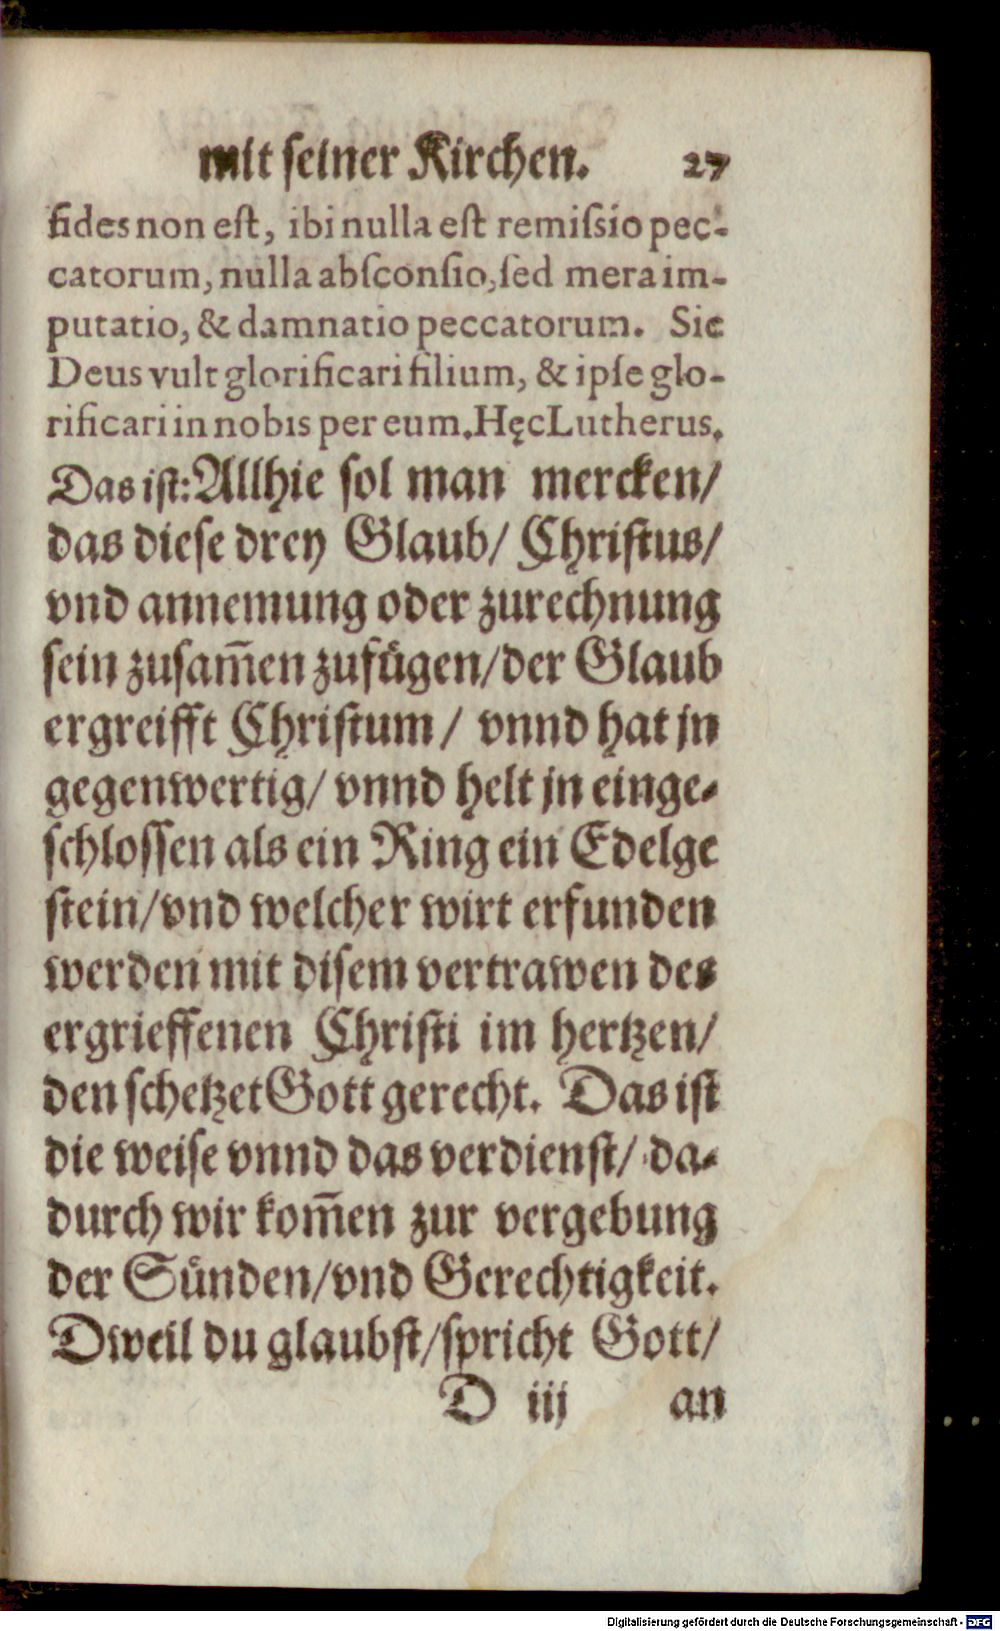 mit seiner Kirchen. 27
fides non est, ibi nulla est remiſsio pec-
catorum, nulla abſconſio, ſed mera im-
putatio, & damnatio peccatorum. Sic
Deus vult glorificari filium, & ipſe glo-
rificari in nobis per eum. Hęc Lutherus.
Das iſt: Allhie ſol man mercken/
das dieſe drey Glaub/ Chriſtus/
vnd annemung oder zurechnung
ſein zuſam̅en zufügen/ der Glaub
ergreifft Chriſtum/ vnnd hat jn
gegenwertig/ vnnd helt jn einge-
ſchloſſen als ein Ring ein Edelge
ſtein/ vnd welcher wirt erfunden
werden mit diſem vertrawen des
ergrieffenen Chriſti im hertzen/
den ſchetzet Gott gerecht. Das iſt
die weiſe vnnd das verdienſt/ da-
durch wir kom̅en zur vergebung
der Sünden/ vnd Gerechtigkeit.
Dweil du glaubſt/ ſpricht Gott/
D iij an
Digitalisierung gefördert durch die Deutsche Forschungsgemeinschaft - DFG